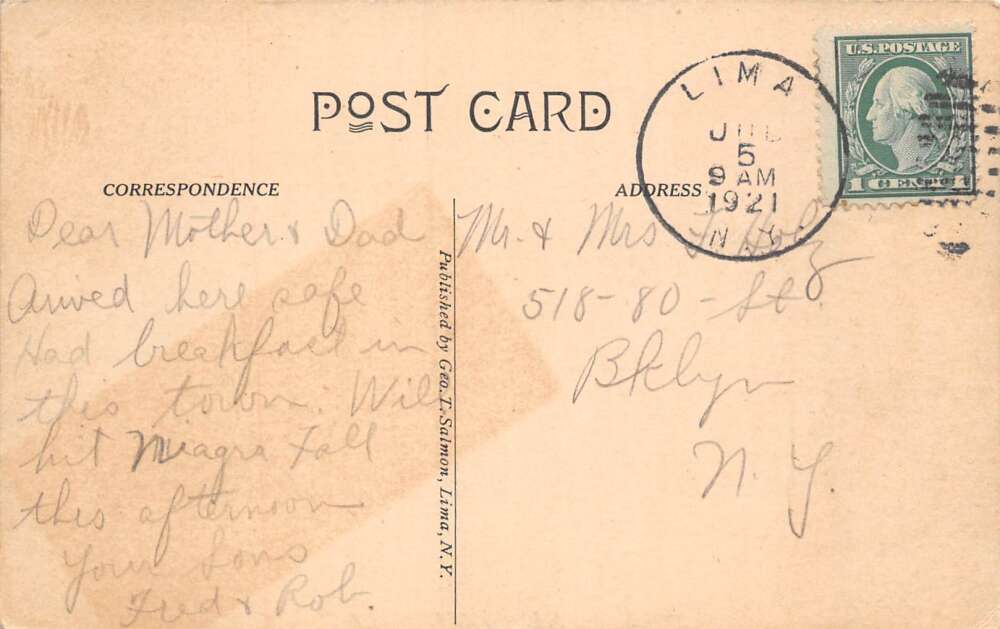 POST CARD
CORRESPONDENCE
ADDRESS
LIMA
JUL
5
9 AM
1921
N.Y.
U.S. POSTAGE
1 CENT 1
Dear Mother & Dad
Arived here safe
Had breakfast in
this town. Will
hit Niagra Fall
this afternoon
Your Sons
Fred & Rob.
Published by Geo. T. Salmon, Lima, N.Y.
Mr. & Mrs
518-80-St.
Bklyn
N. Y.